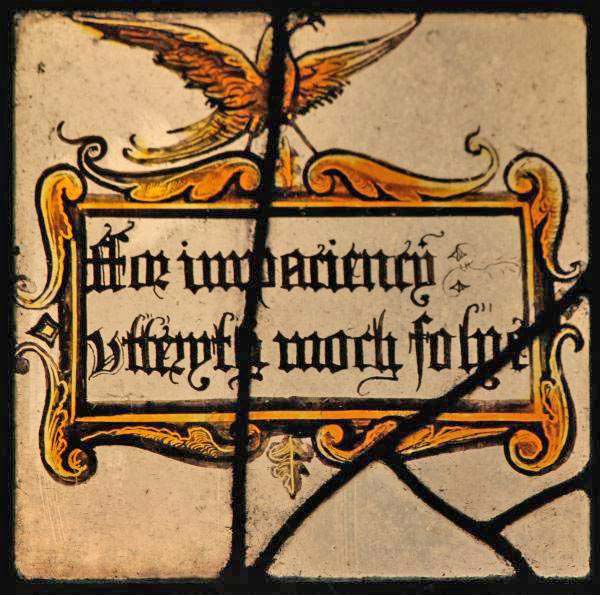 ffor impaciency
vtteryth moch folye